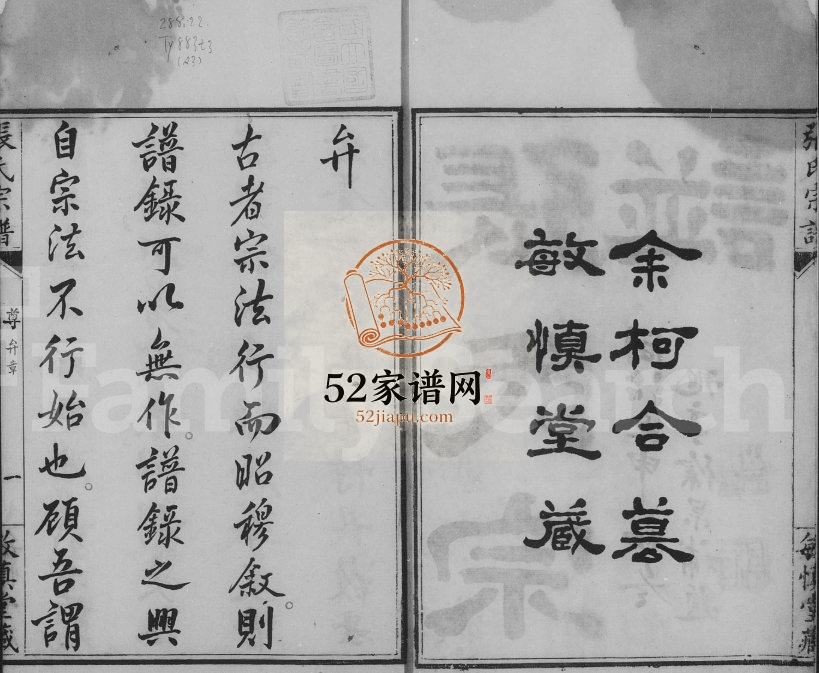 余柯合墓
敏慎堂藏
弁
古者宗法行而昭穆敘。則
譜錄可以無作。譜錄之興
自宗法不行始也。顧吾謂
張氏宗譜
尊弁章
一
敏慎堂藏
張氏宗譜
敏慎堂藏
288.22
52家谱网
52jiapu.com
FamilySearch